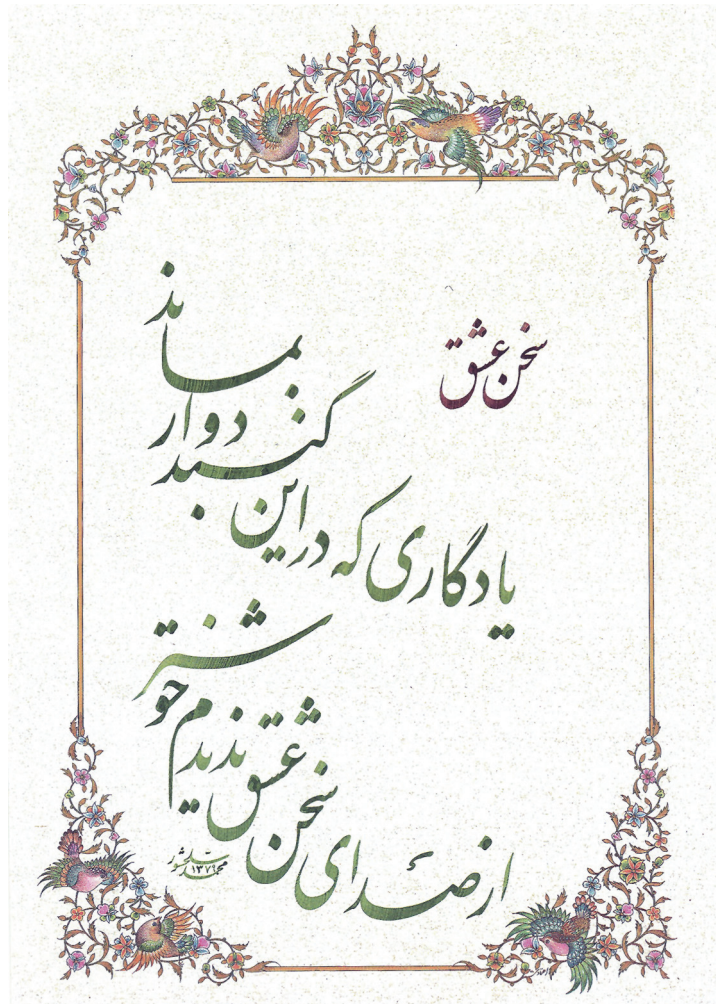 سخن عشق
یادگاری که در این گنبد دوار بماند
از صدای سخن عشق ندیدم خوشتر
محمد سلحشور ۱۳۷۹